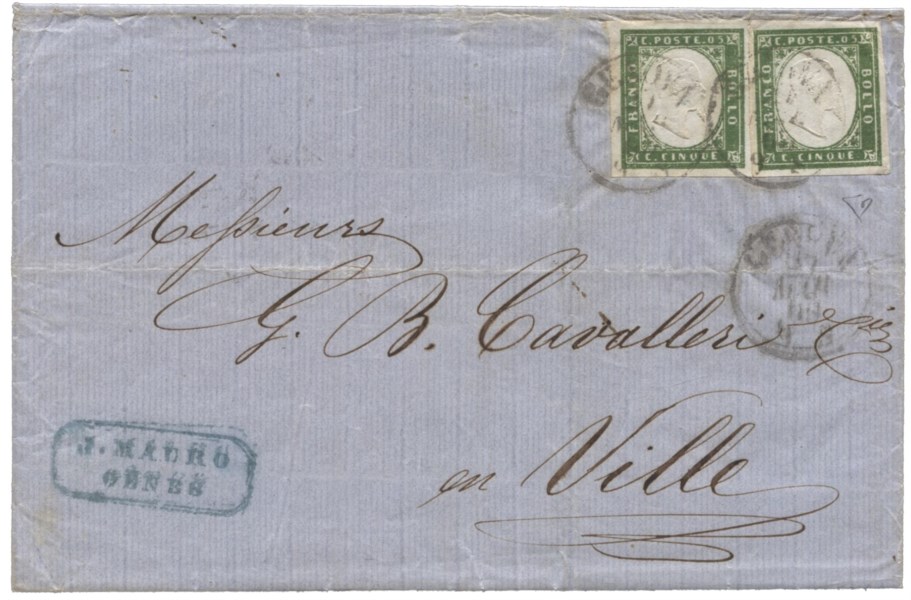 C. POSTE. 05
FRANCO
BOLLO
C. CINQUE
C. POSTE. 05
FRANCO
BOLLO
C. CINQUE
Messieurs
G. B. Cavalleri & Cie
en Ville
GENOVA
J. MAURO
GÊNES